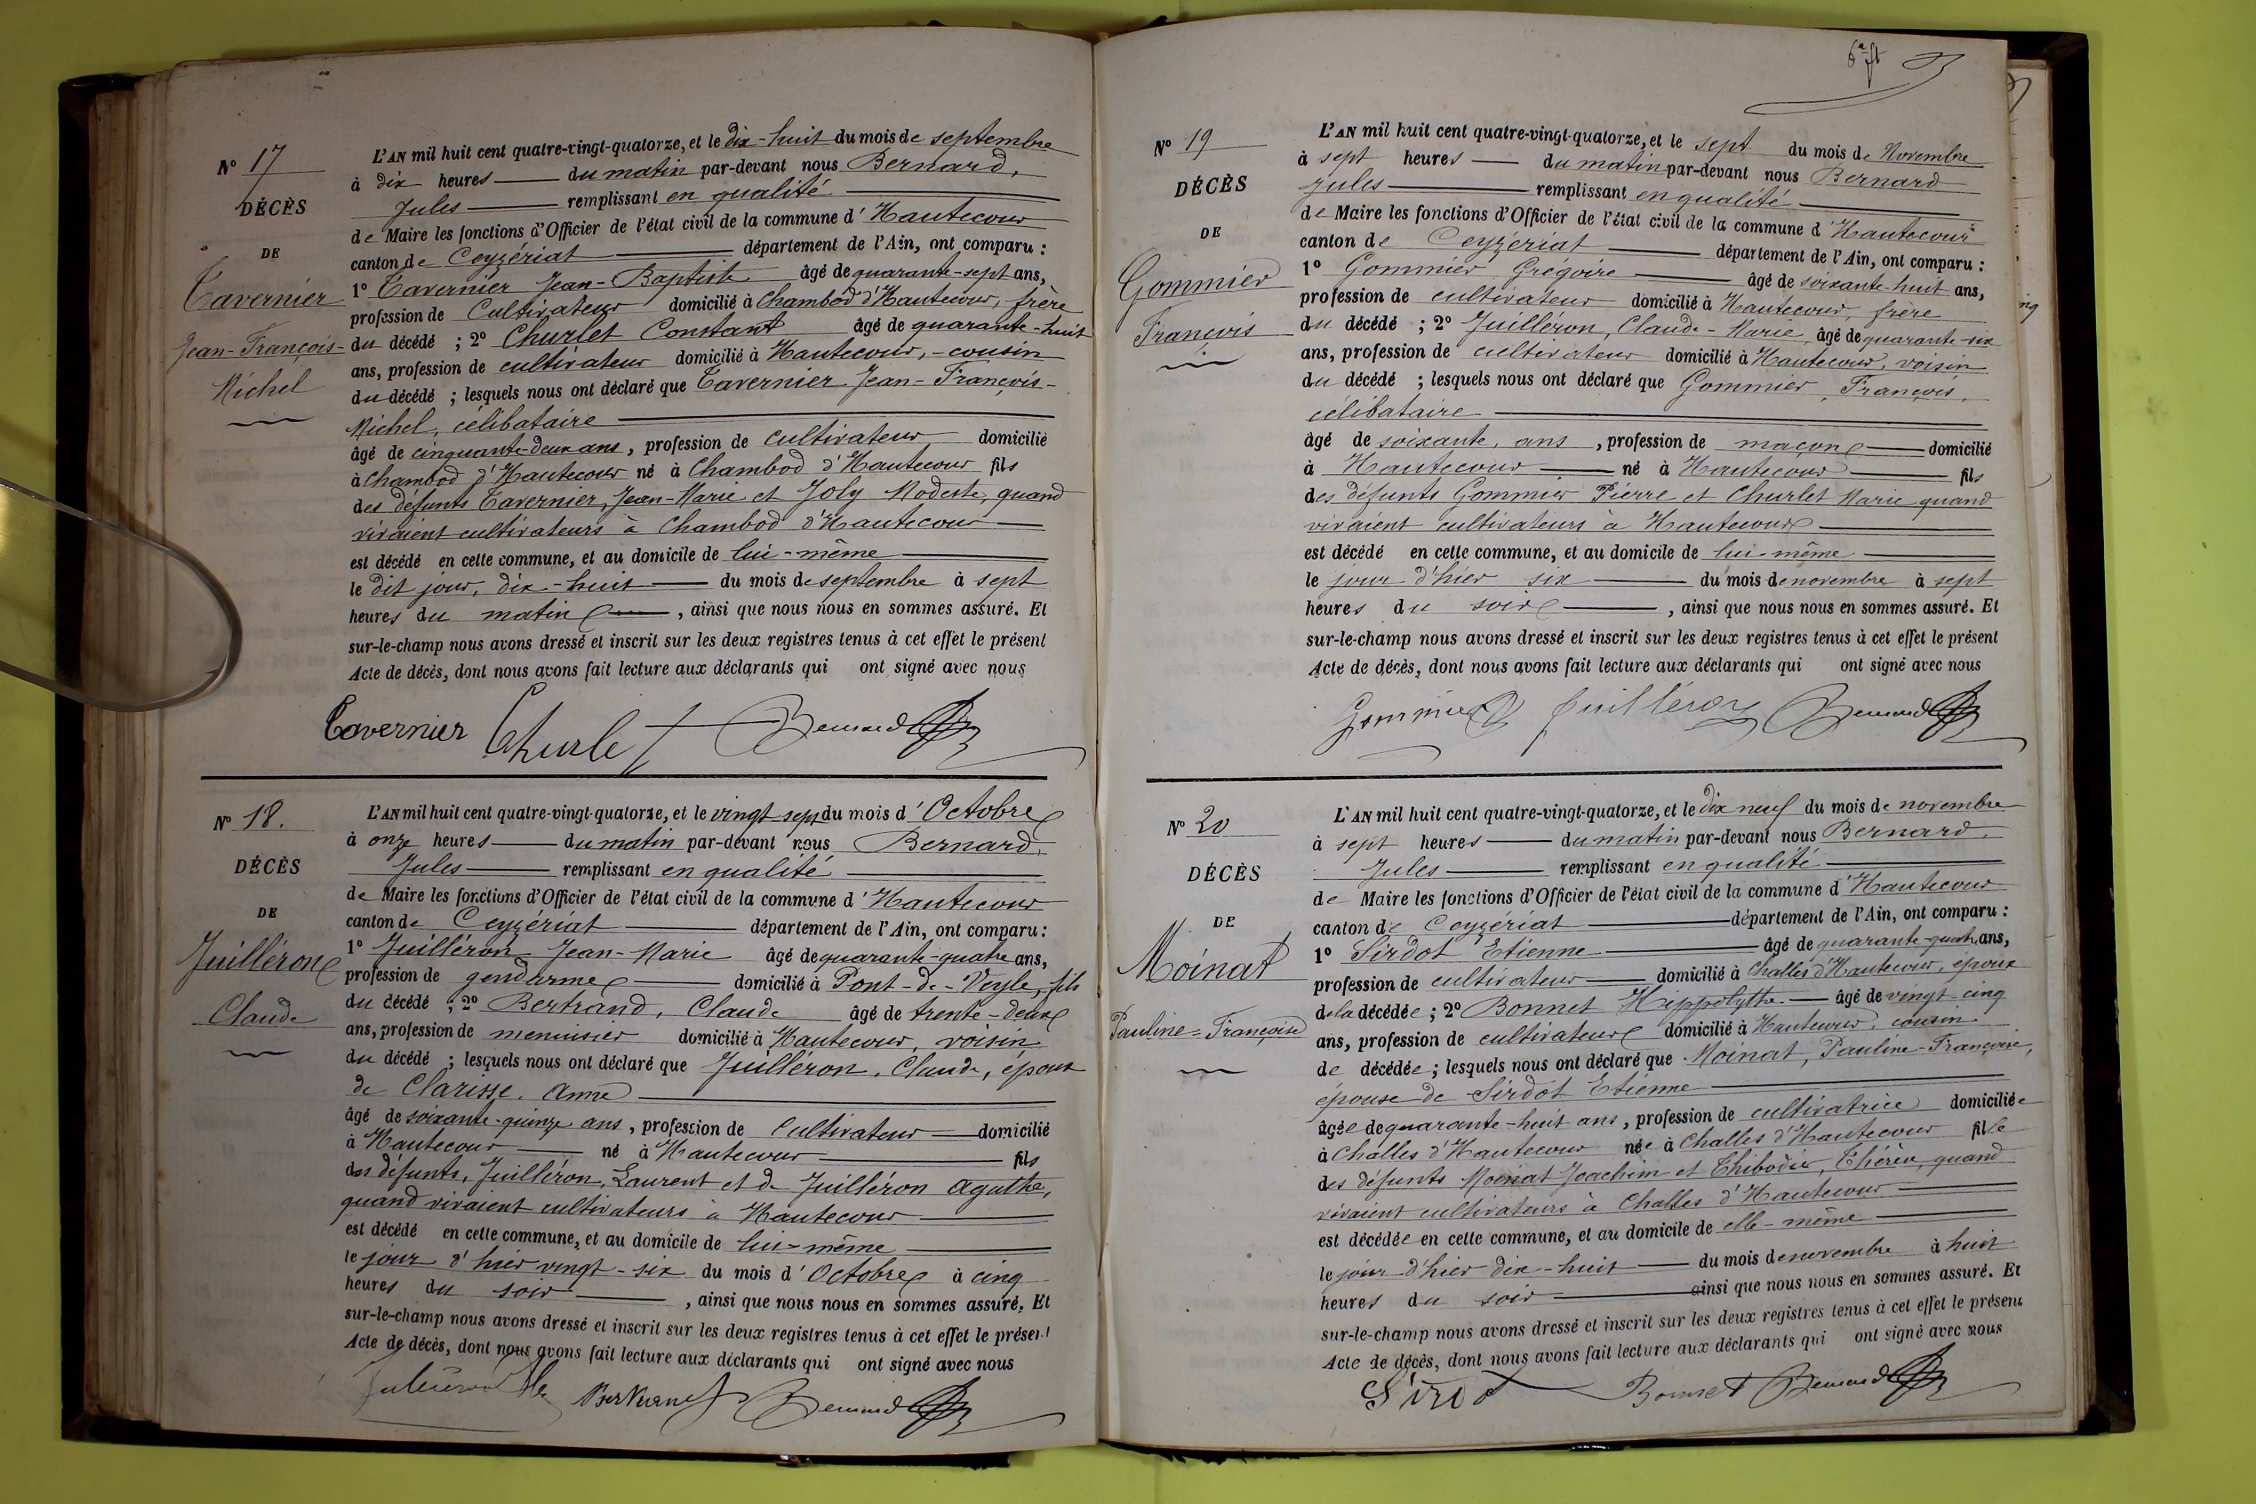 N° 17
DÉCÈS
DE
Tavernier
Jean-François-
Michel
L'AN mil huit cent quatre-vingt-quatorze, et le dix-huit du mois de septembre
à dix heures du matin par-devant nous Bernard,
Jules remplissant en qualité
de Maire les fonctions d'Officier de l'état civil de la commune d'Hautecour
canton de Ceyzériat département de l'Ain, ont comparu :
1° Tavernier Jean-Baptiste âgé de quarante-sept ans,
profession de Cultivateur domicilié à Chambod d'Hautecour, frère
du décédé ; 2° Churlet Constant âgé de quarante-huit
ans, profession de cultivateur domicilié à Hautecour, cousin
du décédé ; lesquels nous ont déclaré que Tavernier Jean-François-
Michel, célibataire
âgé de cinquante-deux ans, profession de cultivateur domicilié
à Chambod d'Hautecour né à Chambod d'Hautecour fils
des défunts Tavernier, Jean-Marie et Joly Modeste, quand
vivaient cultivateurs à Chambod d'Hautecour
est décédé en cette commune, et au domicile de lui-même
le dit jour, dix-huit du mois de septembre à sept
heures du matin, ainsi que nous nous en sommes assuré. Et
sur-le-champ nous avons dressé et inscrit sur les deux registres tenus à cet effet le présent
Acte de décès, dont nous avons fait lecture aux déclarants qui ont signé avec nous
Tavernier Churlet Bernard
N° 18.
DÉCÈS
DE
Juilléron
Claude
L'AN mil huit cent quatre-vingt-quatorze, et le vingt sept du mois d'Octobre
à onze heures du matin par-devant nous Bernard,
Jules remplissant en qualité
de Maire les fonctions d'Officier de l'état civil de la commune d'Hautecour
canton de Ceyzériat département de l'Ain, ont comparu :
1° Juilléron Jean-Marie âgé de quarante-quatre ans,
profession de gendarme domicilié à Pont-de-Veyle, fils
du décédé ; 2° Bertrand, Claude âgé de trente-deux
ans, profession de menuisier domicilié à Hautecour, voisin
du décédé ; lesquels nous ont déclaré que Juilléron, Claude, époux
de Clarisse. Anne
âgé de soixante-quinze ans, profession de Cultivateur domicilié
à Hautecour né à Hautecour fils
des défunts, Juilléron, Laurent et de Juilléron Agathe,
quand vivaient cultivateurs à Hautecour
est décédé en cette commune, et au domicile de lui-même
le jour d'hier vingt-six du mois d'Octobre à cinq
heures du soir, ainsi que nous nous en sommes assuré. Et
sur-le-champ nous avons dressé et inscrit sur les deux registres tenus à cet effet le présent
Acte de décès, dont nous avons fait lecture aux déclarants qui ont signé avec nous
Bernard
N° 19
DÉCÈS
DE
Gommier
François
L'AN mil huit cent quatre-vingt-quatorze, et le sept du mois de Novembre
à sept heures du matin par-devant nous Bernard
Jules remplissant en qualité
de Maire les fonctions d'Officier de l'état civil de la commune d'Hautecour
canton de Ceyzériat département de l'Ain, ont comparu :
1° Gommier Grégoire âgé de soixante-huit ans,
profession de cultivateur domicilié à Hautecour, frère
du décédé ; 2° Juilléron, Claude-Marie âgé de quarante-six
ans, profession de cultivateur domicilié à Hautecour, voisin
du décédé ; lesquels nous ont déclaré que Gommier, François,
célibataire
âgé de soixante, ans, profession de maçon domicilié
à Hautecour né à Hautecour fils
des défunts Gommier Pierre et Churlet Marie quand
vivaient cultivateurs à Hautecour
est décédé en cette commune, et au domicile de lui-même
le jour d'hier six du mois de novembre à sept
heures du soir, ainsi que nous nous en sommes assuré. Et
sur-le-champ nous avons dressé et inscrit sur les deux registres tenus à cet effet le présent
Acte de décès, dont nous avons fait lecture aux déclarants qui ont signé avec nous
Gommier Juilléron Bernard
N° 20
DÉCÈS
DE
Moinat
Pauline-Françoise
L'AN mil huit cent quatre-vingt-quatorze, et le dix neuf du mois de novembre
à sept heures du matin par-devant nous Bernard,
Jules remplissant en qualité
de Maire les fonctions d'Officier de l'état civil de la commune d'Hautecour
canton de Ceyzériat département de l'Ain, ont comparu :
1° Sirdot Etienne âgé de quarante-quatre ans,
profession de cultivateur domicilié à Challes d'Hautecour, époux
de la décédée ; 2° Bonnet Hippolythe âgé de vingt-cinq
ans, profession de cultivateur domicilié à Hautecour, cousin
de décédée ; lesquels nous ont déclaré que Moinat, Pauline-Françoise,
épouse de Sirdot Etienne
âgée de quarante-huit ans, profession de cultivatrice domiciliée
à Challes d'Hautecour née à Challes d'Hautecour fille
des défunts Moinat Joachim et Thibodier, quand
vivaient cultivateurs à Challes d'Hautecour
est décédée en cette commune, et au domicile de elle-même
le jour d'hier dix-huit du mois de novembre à huit
heures du soir ainsi que nous nous en sommes assuré. Et
sur-le-champ nous avons dressé et inscrit sur les deux registres tenus à cet effet le présent
Acte de décès, dont nous avons fait lecture aux déclarants qui ont signé avec nous
Sirdot Bonnet Bernard